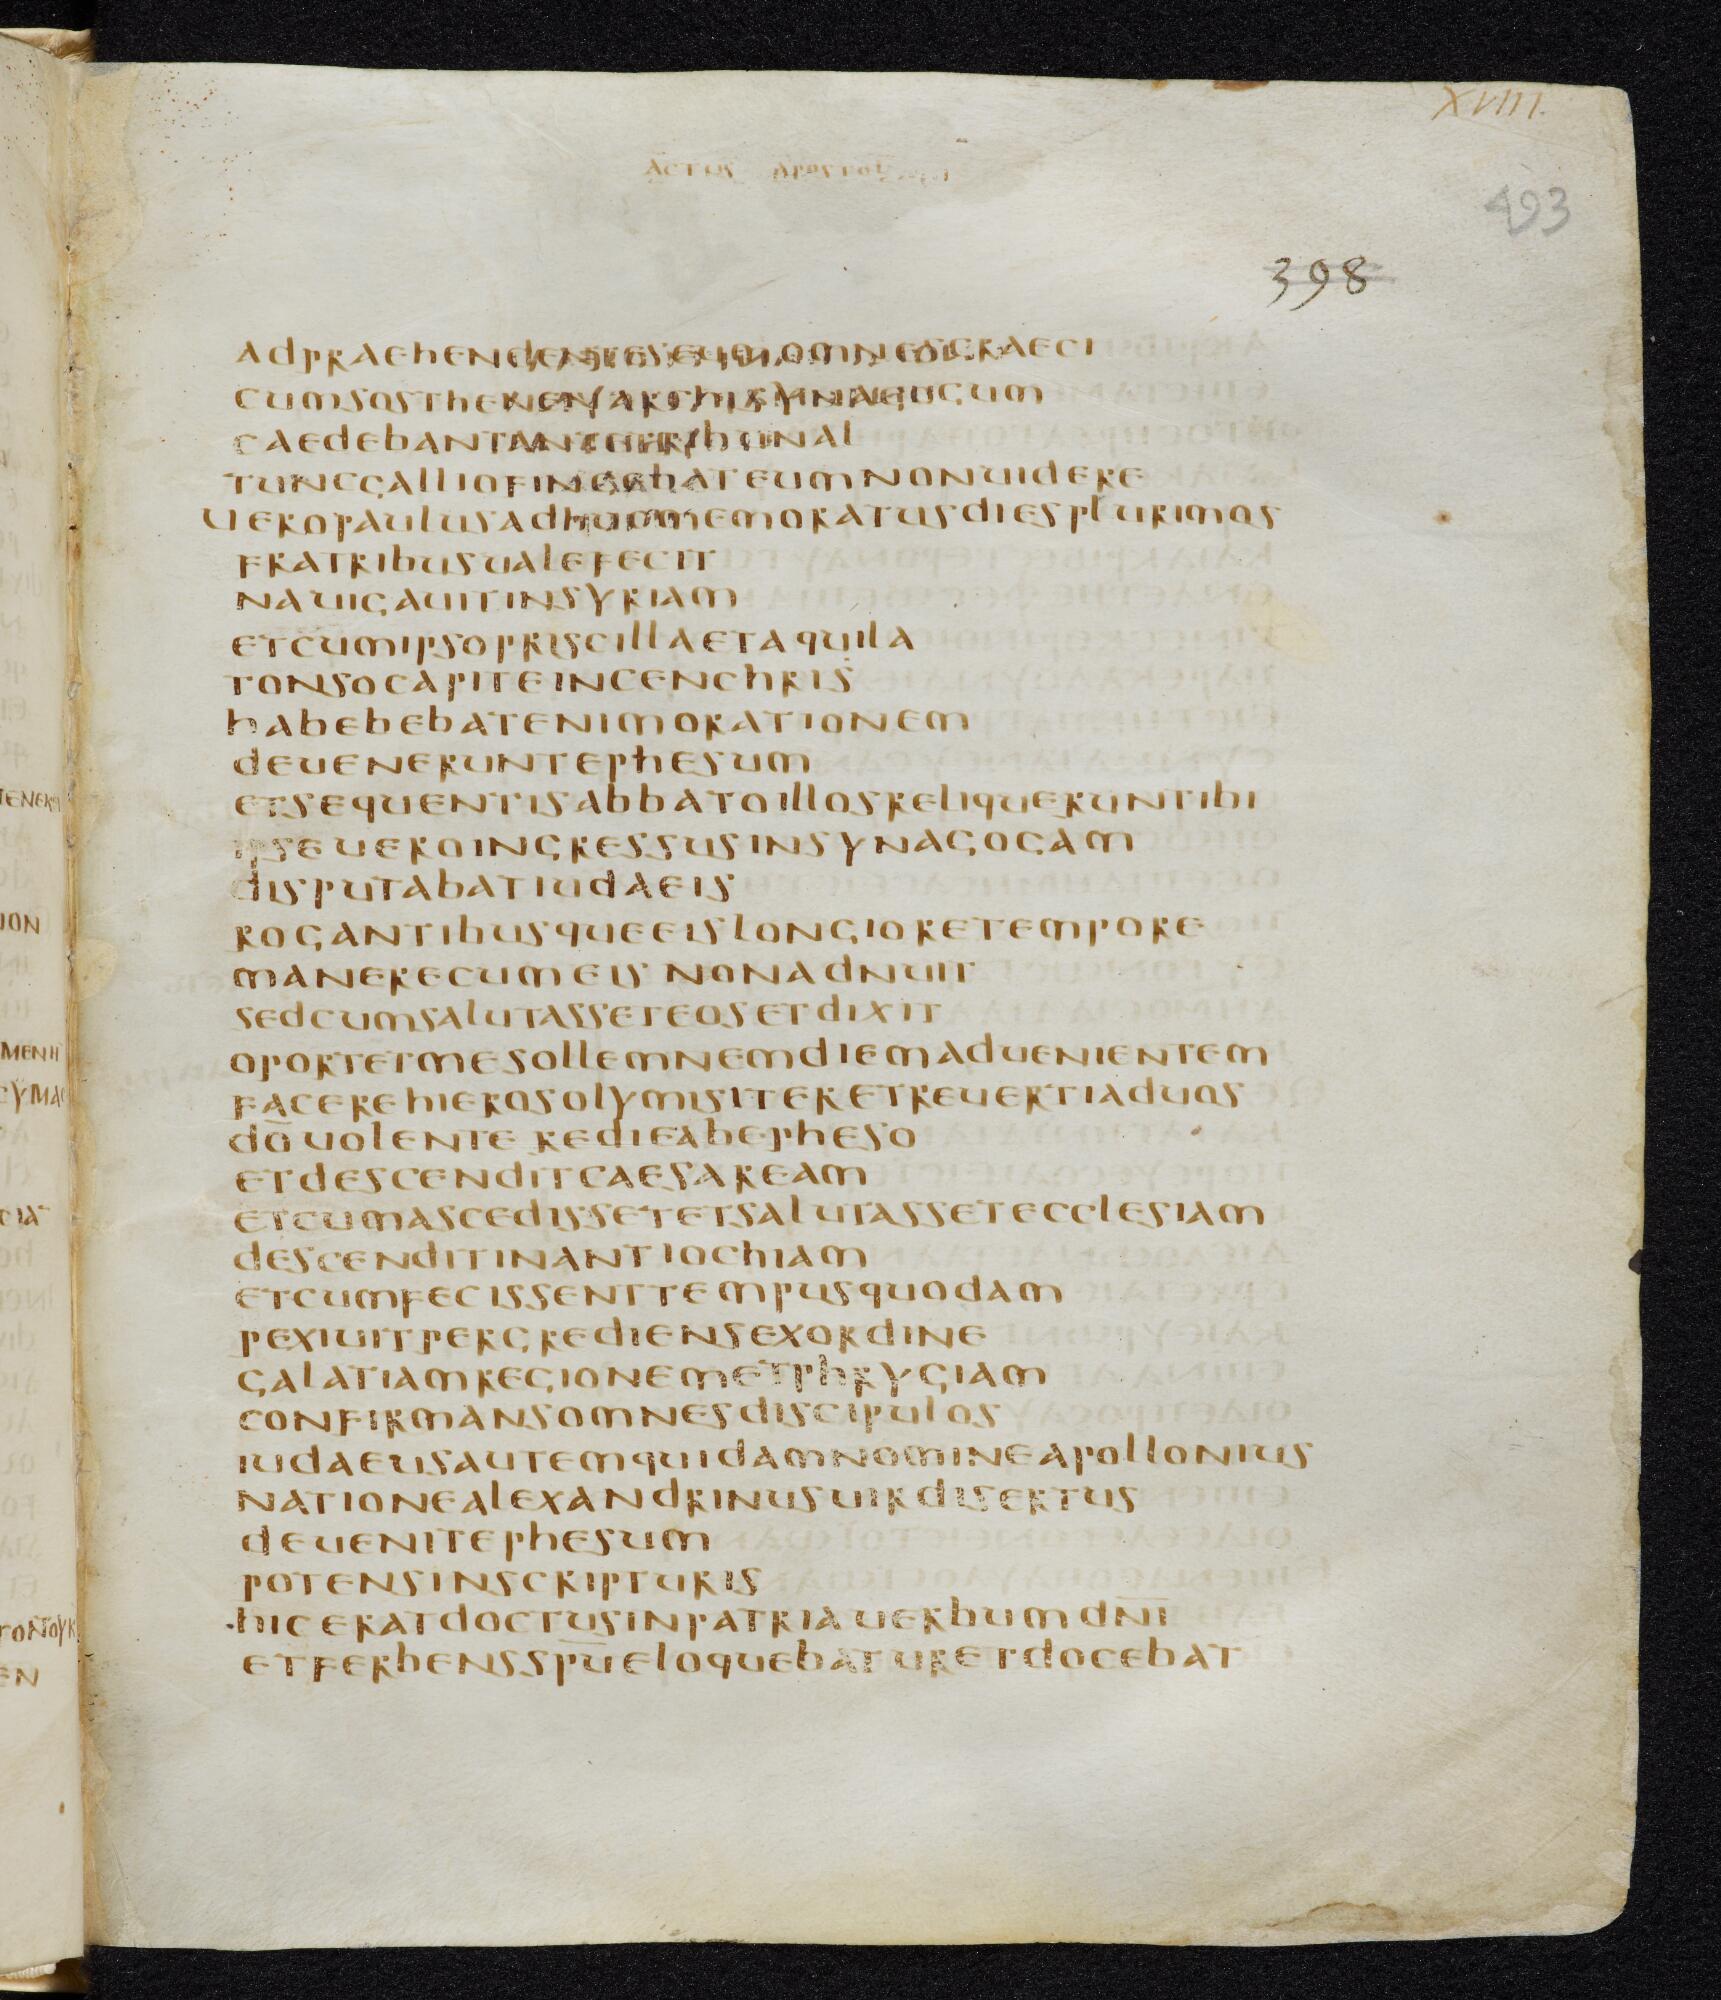 XVIII.
ACTUS APOSTOL
493
398
ADPRAEHENDENTES EUM OMNES GRAECI
CUM SOSTHENEN ARCHISYNAGUCUM
CAEDEBANT ANTE TRIBUNAL
TUNC GALLIO FINGEBAT EUM NON UIDERE
UERO PAULUS ADHUC MEMORATUS DIES PLURIMOS
FRATRIBUS UALEFECIT
NAUIGAUIT IN SYRIAM
ET CUM IPSO PRISCILLA ET AQUILA
TONSO CAPITE IN CENCHRIS
HABEBEBAT ENIM ORATIONEM
DEUENERUNT EPHESUM
ET SEQUENTI SABBATO ILLOS RELIQUERUNT IBI
IPSE UERO INGRESSUS IN SYNAGOGAM
DISPUTABAT IUDAEIS
ROGANTIBUSQUE EIS LONGIORE TEMPORE
MANERE CUM EIS NON ADNUIT
SED CUM SALUTASSET EOS ET DIXIT
OPORTET ME SOLLEMNEM DIEM ADUENIENTEM
FACERE HIEROSOLYMIS ITER ET REUERTI AD UOS
DŌ UOLENTE REDIE AB EPHESO
ET DESCENDIT CAESAREAM
ET CUM ASCEDISSET ET SALUTASSET ECCLESIAM
DESCENDIT IN ANTIOCHIAM
ET CUM FECISSENT TEMPUS QUODAM
PEXIUIT PERGREDIENS EX ORDINE
GALATIAM REGIONEM ET PHRYGIAM
CONFIRMANS OMNES DISCIPULOS
IUDAEUS AUTEM QUIDAM NOMINE APOLLONIUS
NATIONE ALEXANDRINUS UIR DISERTUS
DEUENIT EPHESUM
POTENS IN SCRIPTURIS
·HIC ERAT DOCTUS IN PATRIA UERBUM DN̄I
ET FERBENS SPŪ ELOQUEBATUR ET DOCEBAT